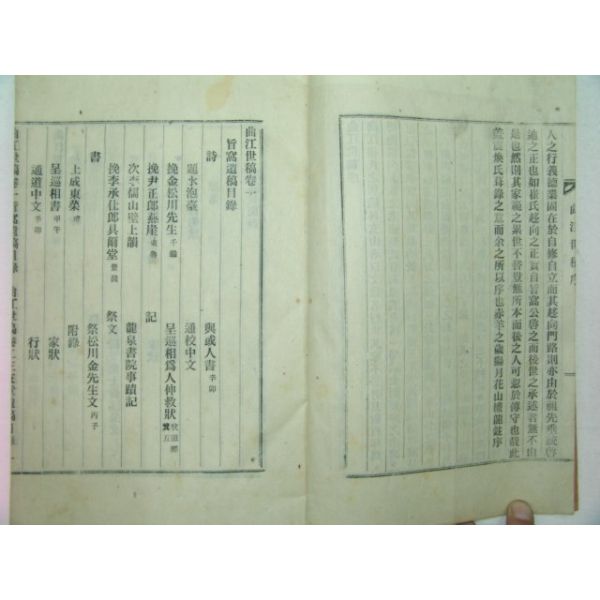 人之行義德業固在於自修自立而其趍向門路則亦由於祖先垂統啓
迪之正也如崔氏趍向之正實自旨窩公啓之而後世之承述者無不由
是也然則其家範之累世不替豈無所本而後之人可忽於傳守也哉此
義晨煥氏
錄之意而余之所以序也赤羊之歲
月花山權龍
序
曲江世稿序
曲江世稿卷之一
旨窩遺稿目錄
詩
題水泡臺
挽金松川先生
挽尹正郎藜崖
次李儒山壁上韻
挽李承仕郎具爾堂
書
上成東萊
呈巡相書 甲午
通道中文 辛卯
與或人書 辛卯
通校中文
呈巡相爲人伸救狀
記
龍泉書院事蹟記
祭文
祭松川金先生文 丙子
附錄
家狀
行狀